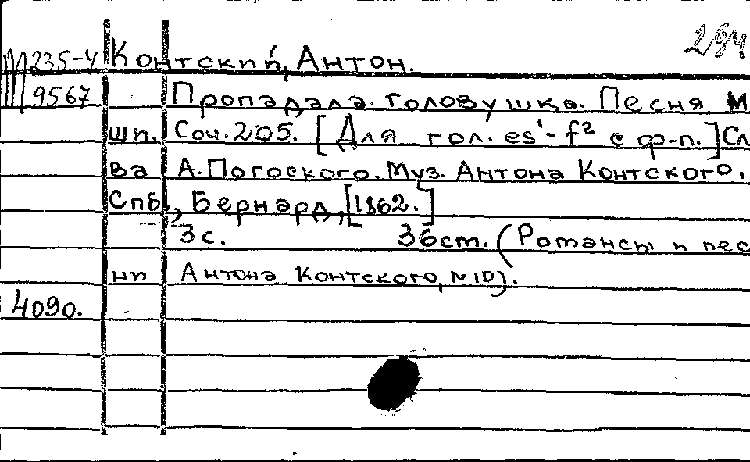 294
М 235-4 Контский, Антон.
9567 Пропадала головушка. Песня М
шп. Соч. 205. [Для гол. es¹-f² с ф-п.] Сл
ва А. Погоского. Муз. Антона Контского.
Спб., Бернард, [1862.]
3 с. 36 ст. (Романсы и пес
ни Антона Контского, №10).
4090.